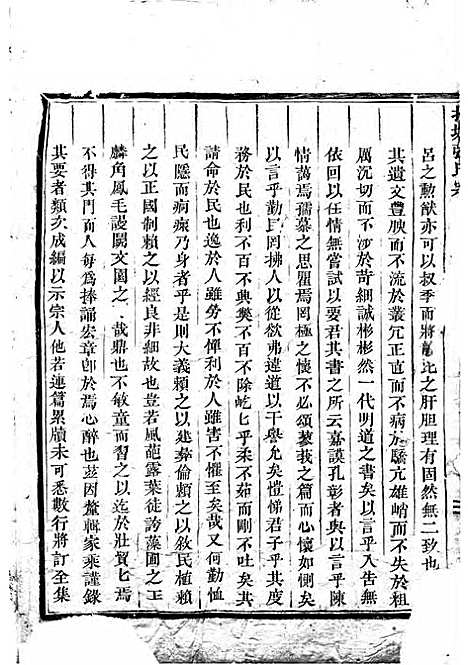 呂之勳猷亦可以叔季而將之肝胆理有固然無二致也
其遺文豐腴而不流於叢冗正直而不病於驕亢雄峭而不失於粗
厲沉切而不涉於苛細誠彬彬然一代明道之書矣以言乎入告無
依回以任情無嘗試以要君其書之所云嘉謨孔彰者與以言乎陳
情藹焉孺慕之思瞿焉罔極之懷不必頌蓼莪之篇而心懷如惻矣
以言乎勤民罔拂人以從欲弗違道以干譽允矣愷悌君子乎其度
務於民也利不百不典獘不百不除屹匕乎柔不茹而剛不吐矣其
請命於民也逸於人雖劳不憚利於人雖害不懼至矣哉又何勤恤
民隱而痌瘝乃身者乎是則大義賴之以建彜倫賴之以敘民植賴
之以正國制賴之以經良非細故也豈若風葩露葉徒誇藻囿之工
麟角鳳毛謾闘文園之哉鼎也不敏童而習之以迄於壯貿匕焉
不得其門而入每爲捧誦宏章卽於焉心醉也茲因釐輯家乘謹錄
其要者類次成編以示宗人他若連篇累牘未可悉數行將訂全集